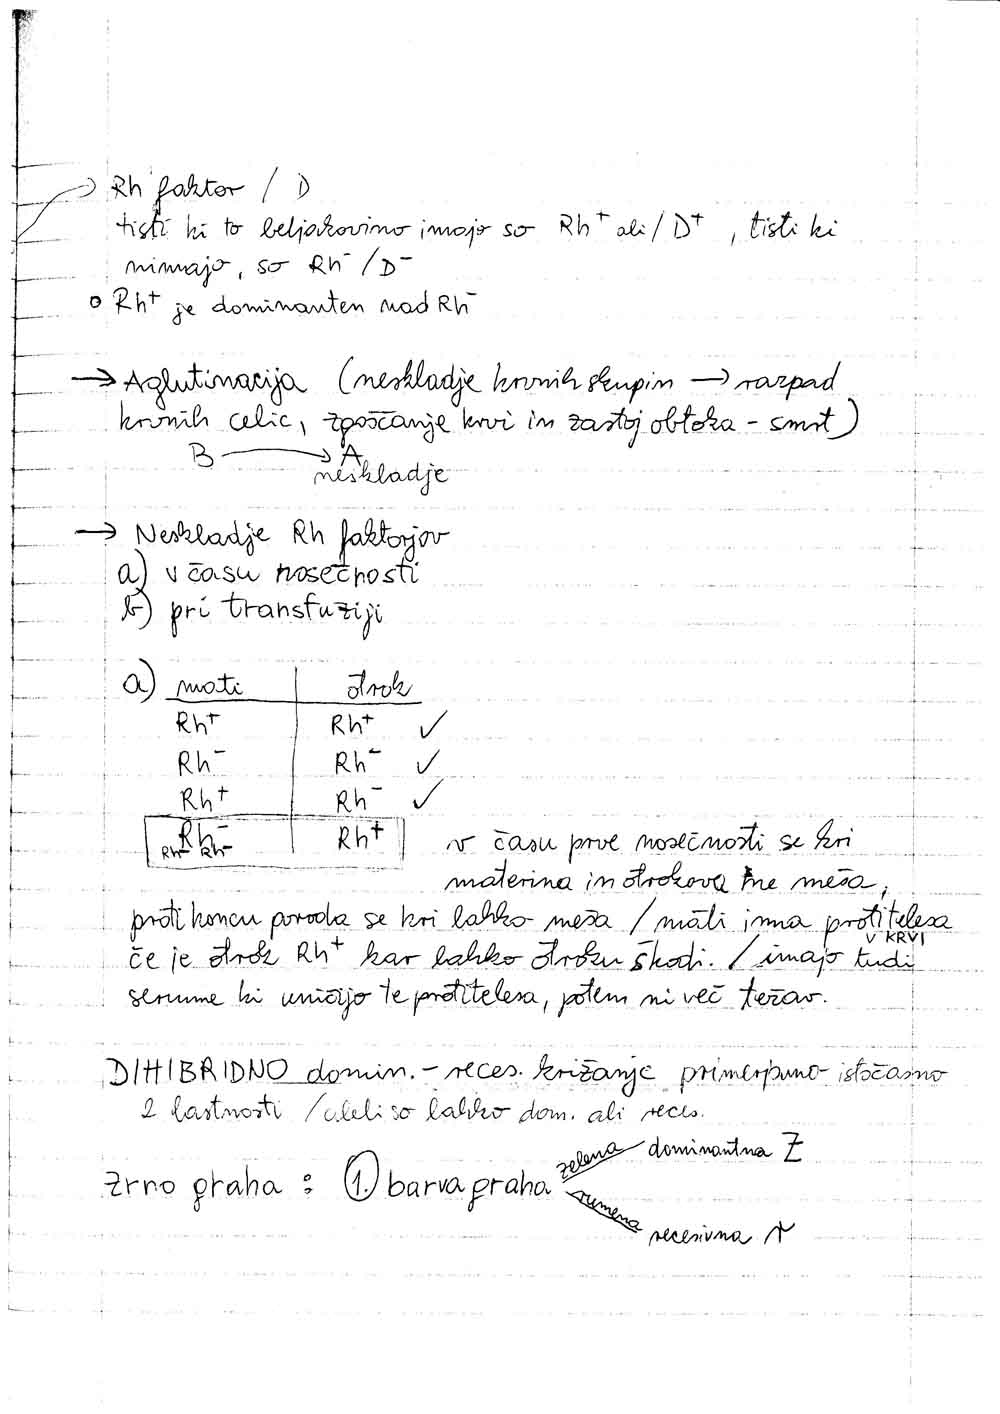 Rh faktor / D
tisti ki to beljakovino imajo so Rh⁺ ali / D⁺, tisti ki
nimajo, so Rh⁻ / D⁻
Rh⁺ je dominanten nad Rh⁻
→ Aglutinacija (neskladje krvnih skupin → razpad
krvnih celic, zgoščanje krvi in zastoj obtoka - smrt)
B → A
neskladje
→ Neskladje Rh faktorjov
a) v času nosečnosti
b) pri transfuziji
a) mati | otrok
Rh⁺ | Rh⁺ ✓
Rh⁻ | Rh⁻ ✓
Rh⁺ | Rh⁻ ✓
Rh⁻ | Rh⁺
Rh⁻ Rh⁻
v času prve nosečnosti se kri
materina in otrokova ne meša,
proti koncu poroda se kri lahko meša / mati ima protitelesa
V KRVI
če je otrok Rh⁺ kar lahko otroku škodi. / imajo tudi
serume ki uničijo te protitelesa, potem ni več težav.
DIHIBRIDNO domin. - reces. križanje istočasno
2 lastnosti / aleli so lahko dom. ali reces.
zelena dominantna Z
Zrno graha : 1. barva graha
rumena
recesivna r